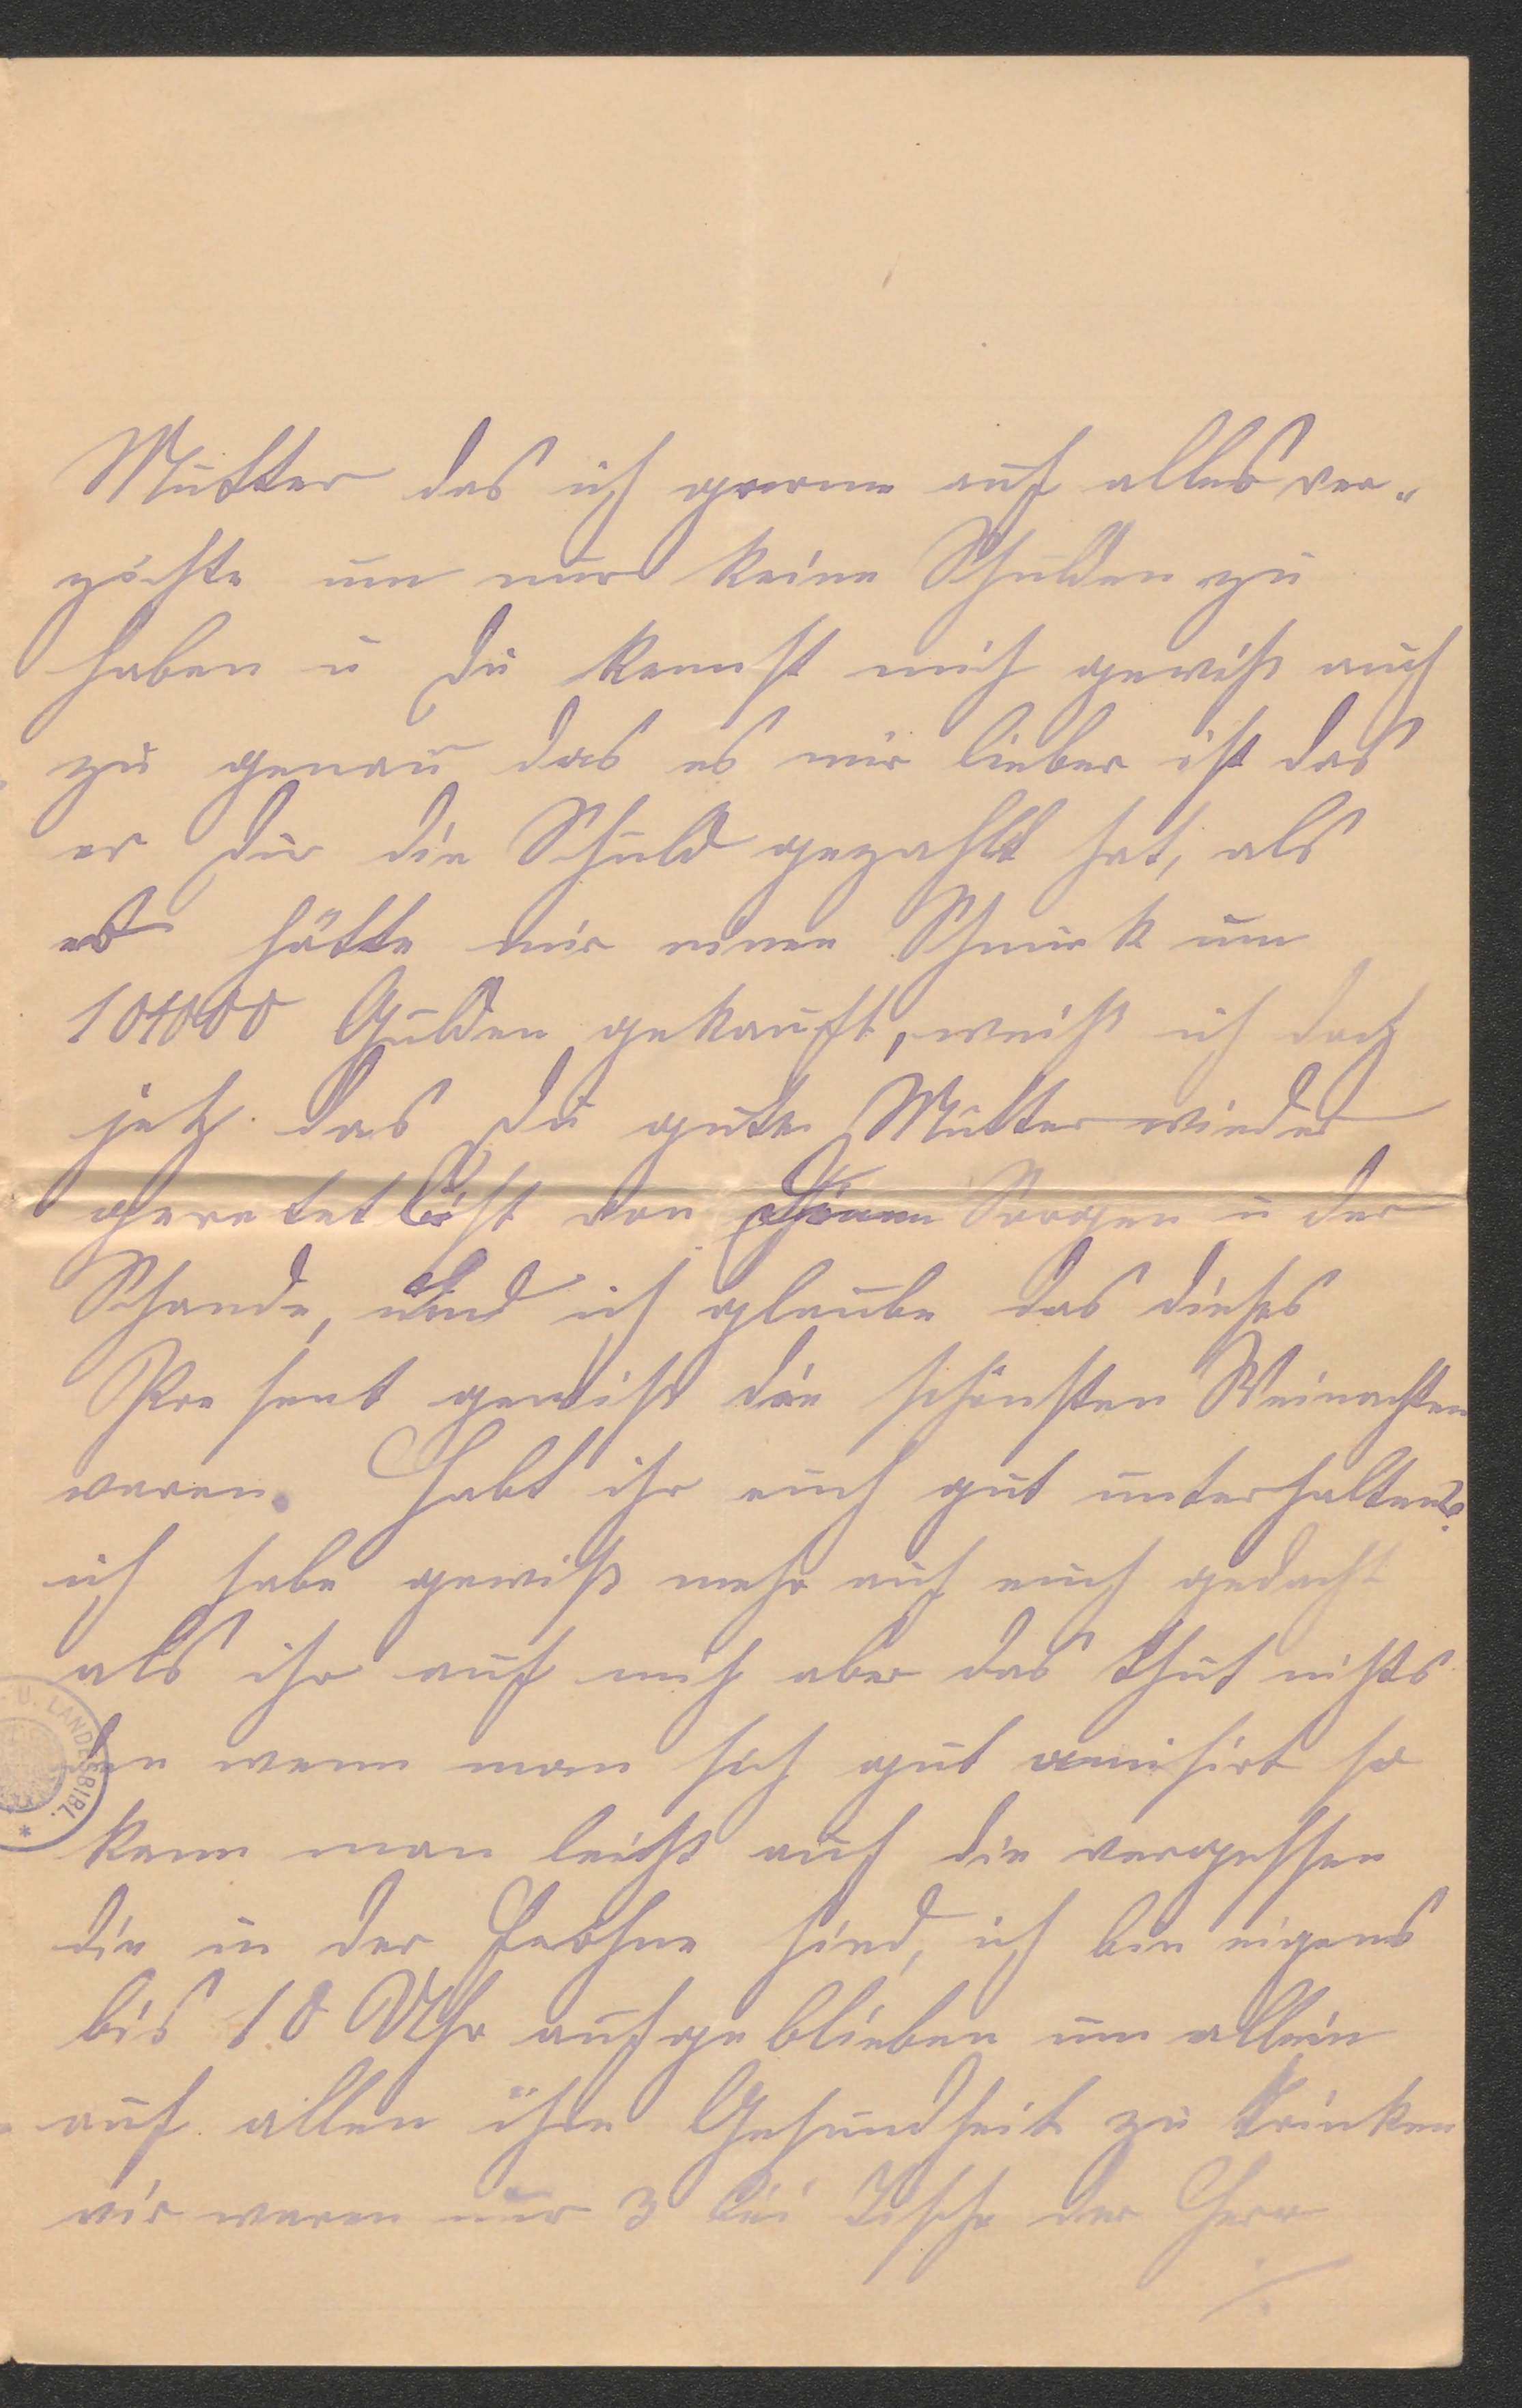 Mutter das ich gerne auf alles ver„
zichte um nur keine Schulden zu
haben u Du kennst mich gewiß auch
zu genau das es mir lieber ist das
er Dir die Schuld gezahlt hat, als
er hätte mir einen Schmuck um
10000 Gulden gekauft, weiß ich doch
jetz das Du gute Mutter wieder
geretet bist von Deinen Sorgen u der
Schande, und ich glaube das dieses
Present gewiß die schönsten Weinachten
waren. Habt ihr euch gut unterhalten?
ich habe gewiß mehr auf euch gedacht
als ihr auf mich aber das thut nichts
den wenn man sich gut amisirt so
kann man leicht auf die vergessen
die in der Ferne sind, ich bin eigens
bis 10 Uhr aufgeblieben um allein
auf allen ihre Gesundheit zu trinken
wir waren nur 3 bei Tische der Herr
./.
U. LANDESBIBL. *